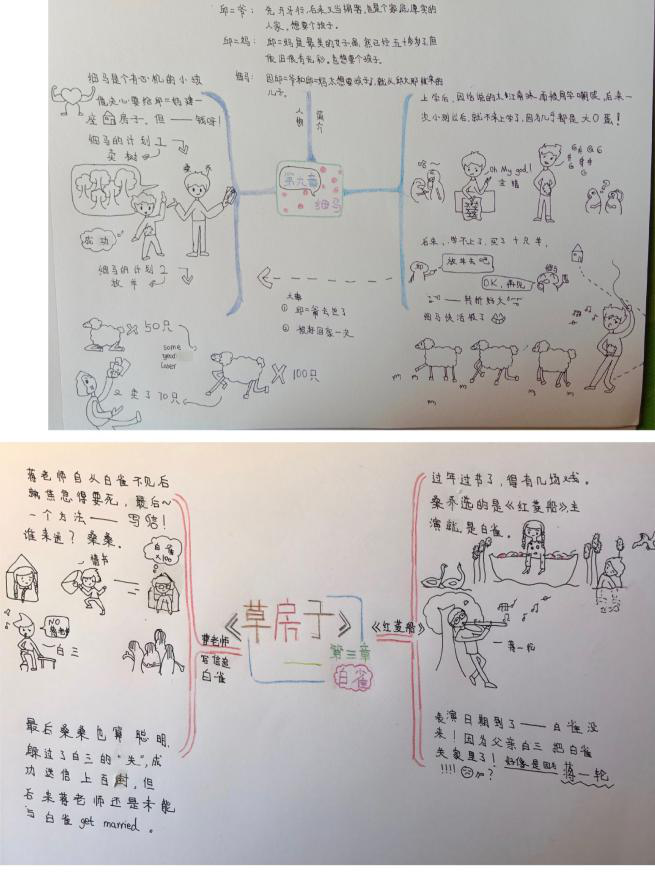 邱二爷：
先开牙行，后来又当掮客，也是个家底厚实的
人家，想要个孩子。
邱二妈：邱二妈是最美的女子，虽然已经五十多岁了，但
依旧很有光彩，也想要个孩子。
细马：因邱二爷和邱二妈太想要孩子了，就从邱大那要来的
儿子。
人物
简介
第九章
细马
细马是个有心机的小孩
他决心要给邱二妈建一
座 房子。但——钱呀！
细马的计划1
卖树
卖不
成功
细马的计划2
放羊
X50只
some
year
later
又卖了70只
X 100只
大事
① 邱二爷去世了
② 被赶回家一次
上学后，因他说的太
而被同学嘲笑，后来一
次小测过后，就不来上学了，因为几乎都是大0蛋！
哈～
Oh My god!
全错
后来，学不上了，买了十只羊，
邱
放羊去吧
细马
OK，再见
——转折好大
细马快活极了
m m m m
m m
蒋老师自从白雀不见后
就焦急得要死，最后～
一个方法——写信！
谁来送？桑桑。
情书
白雀
X100
NO
白三
最后桑桑也算聪明，
躲过了白三的“失”，成
功送信上百封，但
后来蒋老师还是未能
与白雀get married。
曹老师
写信追
白雀
《草房子》
第三章
白雀
《红菱船》
过年过节了，得有几场戏。
桑乔选的是《红菱船》，主
演就是白雀。
蒋一轮
表演日期到了——白雀没
来！因为父亲白三把白雀
关家里了！好像是因为蒋一轮
!!!!